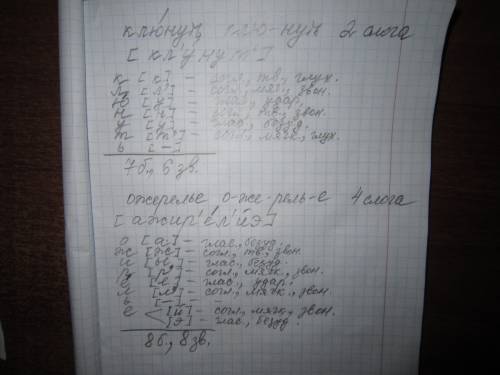 клю́нуть клю-нуть 2 слога
[кл'у́нут']
к [к] - согл., тв., глух.
л [л'] - согл., мягк., звон.
ю [у] - глас., удар.
н [н] - согл., тв., звон.
у [у] - глас., безуд.
т [т'] - согл., мягк., глух.
ь [-]
7б., 6 зв.
ожерелье о-же-рель-е 4 слога
[ажир'е́л'йэ]
о [а] - глас., безуд.
ж [ж] - согл., тв., звон.
[ы] - глас., безуд.
р [р'] - согл., мягк., звон.
е [е] - глас., удар.
л [л'] - согл., мягк., звон.
ь [-] -
е < [й] - согл., мягк., звон.
[э] - глас., безуд.
8б., 8зв.